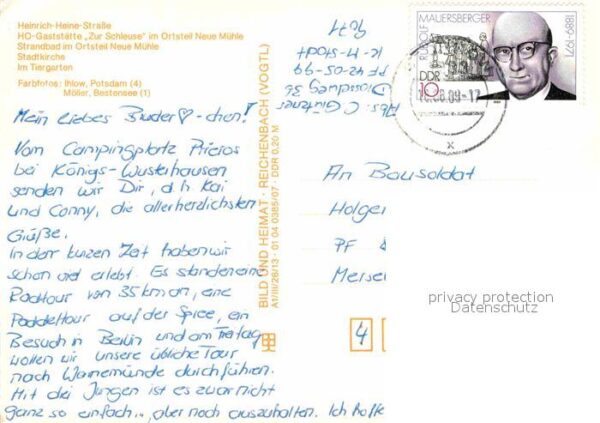 Heinrich-Heine-Straße
HO-Gaststätte „Zur Schleuse" im Ortsteil Neue Mühle
Strandbad im Ortsteil Neue Mühle
Stadtkirche
Im Tiergarten
Farbfotos: Ihlow, Potsdam (4)
Möller, Bestensee (1)
Mein liebes Bruder♡-chen!
Vom Campingplatz Prieros
bei Königs-Wusterhausen
senden wir Dir, d.h. Kai
und Conny, die allerherzlichsten
Grüße.
In der kurzen Zeit haben wir
schon viel erlebt. Es standen eine
Radtour von 35 km an, eine
Paddeltour auf der Spree, ein
Besuch in Berlin und am Freitag
wollen wir unsere übliche Tour
nach Warnemünde durchführen.
Mit drei Jungen ist es zwar nicht
ganz so einfach, aber noch auszuhalten. Ich hoffe
BILD UND HEIMAT · REICHENBACH (VOGTL)
A1/III/26/13 · 01 04 0385/07 · DDR 0,20 M
Abs. C. Güntner
PF 42-05-99
K-M-Stadt
9071
RUDOLF MAUERSBERGER
1889-1971
DDR
10
An Bausoldat
Holger
PF
4
privacy protection
Datenschutz